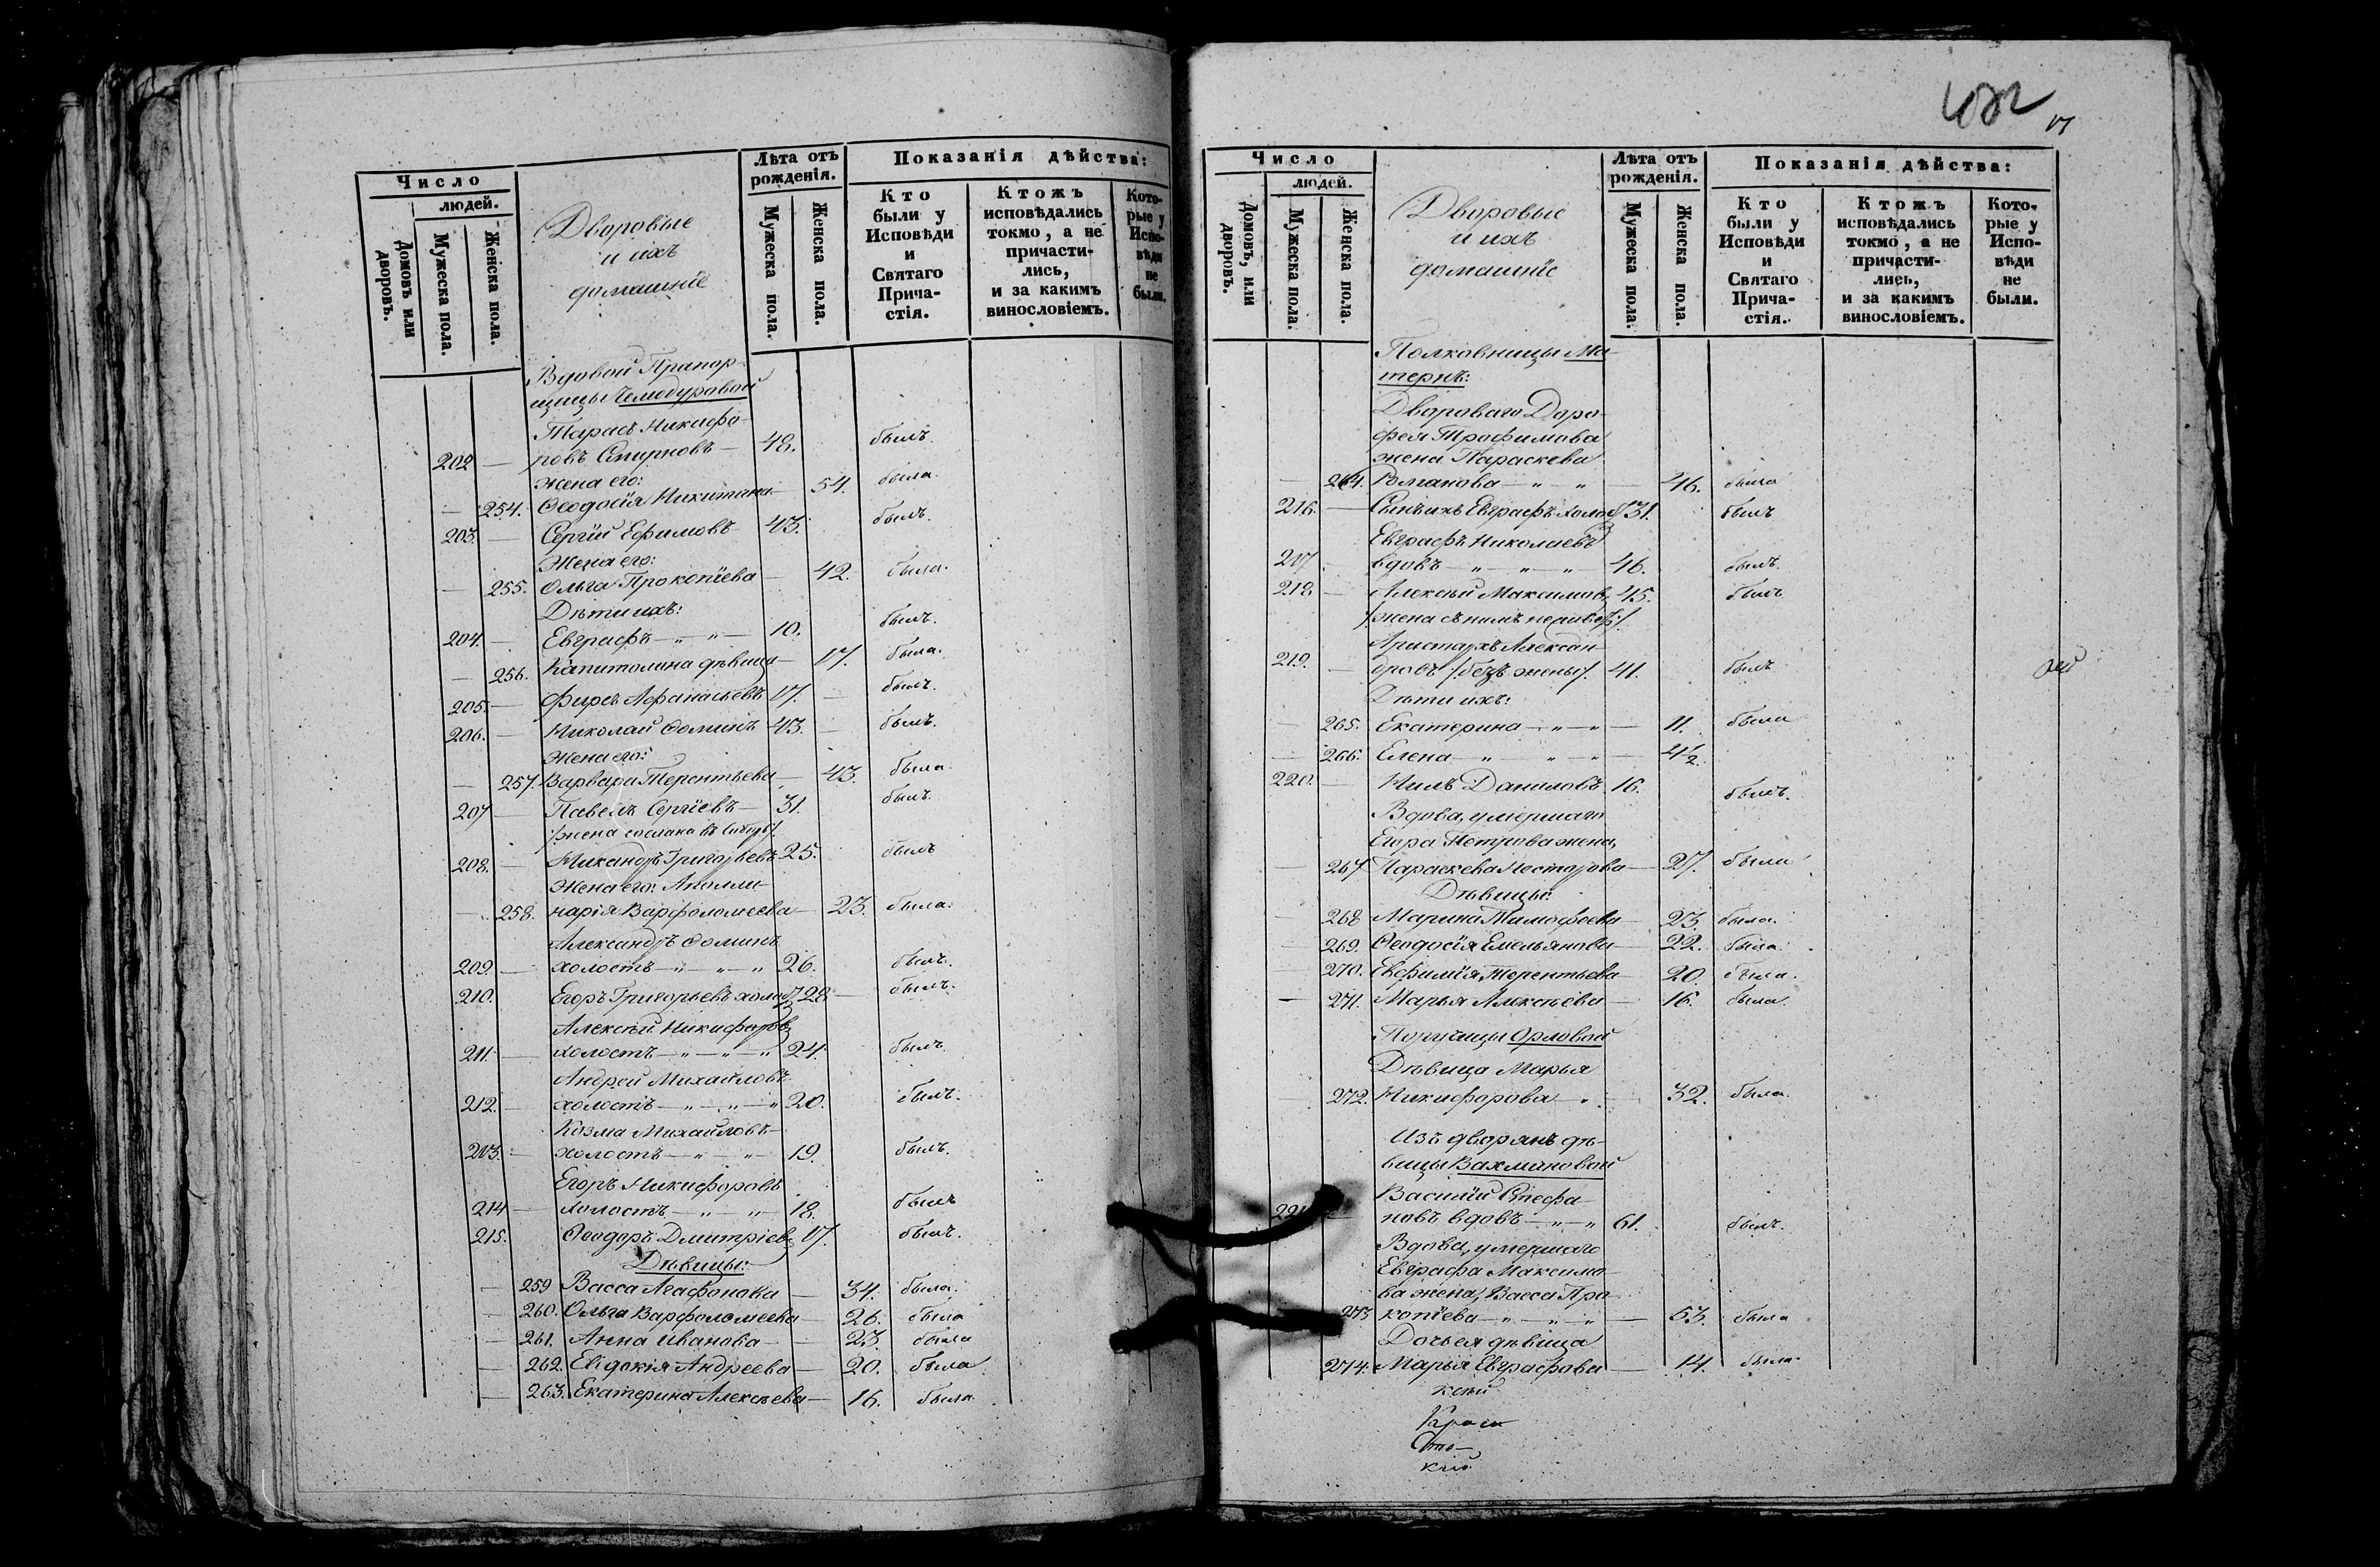 Число
людей.
Домовъ или дворовъ.
Мужеска пола.
Женска пола.
Дворовые
и ихъ
домашніе
Лѣта отъ
рожденія.
Мужеска пола.
Женска пола.
Показанія дѣйства:
Кто
были у
Исповѣди
и
Святаго
Прича-
стія.
Ктожъ
исповѣдались
токмо, а не
причасти-
лись,
и за какимъ
винословіемъ.
Кото-
рые у
Испо-
вѣди
не
были.
Вдовой Прапор-
щицы Чемодуровой
Тарасъ Никифо-
202 — ровъ Смирновъ — 48. былъ.
жена его:
— 254. Ѳеодосія Никитина — 54. была.
203. — Сергій Ефимовъ 43. былъ.
Жена его:
— 255. Ольга Прокопіева — 42. была.
Дѣти ихъ:
204. — Евграфъ — „ „ — 10. былъ.
— 256. Капитолина дѣвица — 17. была.
205. — Фирсъ Афанасьевъ 17. — былъ.
206. — Николай Ѳоминъ 43. — былъ.
Жена его:
— 257. Варвара Терентьева — 43. была.
207 — Павелъ Сергіевъ — 31. былъ.
/жена сослана въ Сибирь/.
208. — Никандръ Григорьевъ 25. былъ
Жена его: Аполли-
— 258. нарія Варфоломеева — 23. была.
Александръ Ѳоминъ
209. — холостъ — „ — „ — „ 26. былъ.
210. Егоръ Григорьевъ холос. 28 — былъ.
Алексѣй Никифоровъ
211. — холостъ — „ — „ — „ 24. былъ.
Андрей Михайловъ
212. — холостъ — „ — „ — „ 20. былъ.
Козма Михайловъ —
213. — холостъ — „ — „ — 19. былъ.
Егоръ Никифоровъ
214 — холостъ — „ — „ — 18. былъ
215. Ѳеодоръ Дмитріевъ 17. былъ.
Дѣвицы:
— 259 Васса Агафонова — 34. была.
— 260. Ольга Варфоломеева — 26. была
— 261. Анна Иванова — 23. была
— 262. Евдокія Андреева — 20. была
— 263. Екатерина Алексѣева — 16. была
17
Число
людей.
Домовъ, или дворовъ.
Мужеска пола.
Женска пола.
Дворовые
и ихъ
домашніе
Лѣта отъ
рожденія.
Мужеска пола.
Женска пола.
Показанія дѣйства:
Кто
были у
Исповѣди
и
Святаго
Прича-
стія.
Ктожъ
исповѣдались
токмо, а не
причасти-
лись,
и за какимъ
винословіемъ.
Кото-
рые у
Испо-
вѣди
не
были.
Полковницы Ма-
тернъ:
Двороваго Доро-
фея Трофимова
жена Параскева
— 264. Романова — „ — „ — 46. была
216. — Сынъ ихъ Евграфъ холос. 31. былъ
Евграфъ Николаевъ
217 вдовъ — „ — „ — „ — 46. былъ.
218. — Алексѣй Максимовъ 45. былъ
/жена съ нимъ не живетъ/.
Аристархъ Алексан-
219. — дровъ /безъ жены/. 41. былъ
Дѣти ихъ:
— 265. Екатерина — „ — „ — 11. была
— 266. Елена — „ — „ — „ — 4½
220. — Нилъ Даниловъ. 16. былъ.
Вдова, умершаго
Егора Петрова жена,
— 267 Параскева Нестерова — 27. была
Дѣвицы:
— 268 Марина Тимофеева — 23. была.
— 269. Ѳеодосія Емельянова — 22. была
— 270. Евфимія Терентьева 20. была.
— 271. Марья Алексѣева — 16. была.
Поручицы Орловой
Дѣвица Марья
272. Никифорова — „ — 32. была.
Изъ дворянъ дѣ-
вицы Вахминовой
Василій Стефа-
221 — новъ вдовъ — „ — „ 61. былъ.
Вдова, умершаго
Евграфа Максимо-
ва жена, Васса Про-
273 копіева — „ — „ — „ — 53. была
Дочь ея дѣвица
274. Марья Евграфова — 14. была
ксѣй